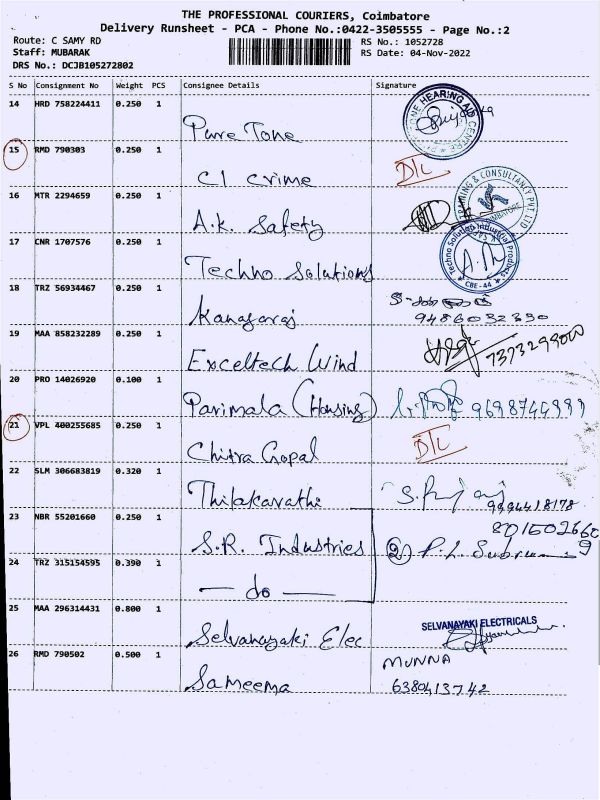 THE PROFESSIONAL COURIERS, Coimbatore
Delivery Runsheet - PCA - Phone No.:0422-3505555 - Page No.:2
Route: C SAMY RD
RS No.: 1052728
Staff: MUBARAK
RS Date: 04-Nov-2022
DRS No.: DCJB105272802
S No Consignment No Weight PCS Consignee Details Signature
14 HRD 758224411 0.250 1
Pure Tone
HEARING AID CENTRE
15 RMD 790303 0.250 1
C1 Crime
D/L
16 MTR 2294659 0.250 1
A.K. Safety
TRAINING & CONSULTANCY PVT LTD
COIMBATORE
17 CNR 1707576 0.250 1
Techno Solutions
Techno Solution Industrial Products
CBE - 44
18 TRZ 56934467 0.250 1
Kanagaraj
9486032330
19 MAA 858232289 0.250 1
Exceltech Wind
20 PRO 14026920 0.100 1
Parimala (Housing)
21 VPL 400255685 0.250 1
Chitra Gopal
D/L
22 SLM 306683819 0.320 1
Thilakavathi
9994418178
23 NBR 55201660 0.250 1
S.R. Industries
24 TRZ 315154595 0.390 1
— do —
25 MAA 296314431 0.800 1
Selvanayaki Elec
SELVANAYAKI ELECTRICALS
26 RMD 790502 0.500 1
Sameema
MUNNA
6380413742